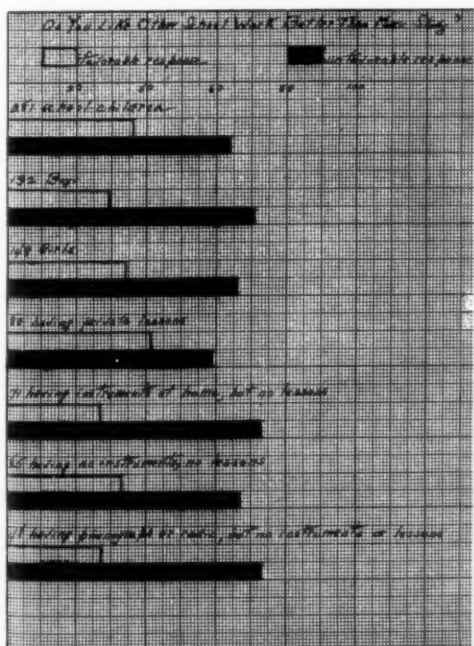 Do You Like Other School Work Better Than Music Study?
favorable response unfavorable response
20 40 60 80 100
281 school children
132 Boys
149 Girls
having private lessons
71 having instruments at home, but no lessons
having no instruments, no lessons
having phonograph or radio, but no instruments or lessons